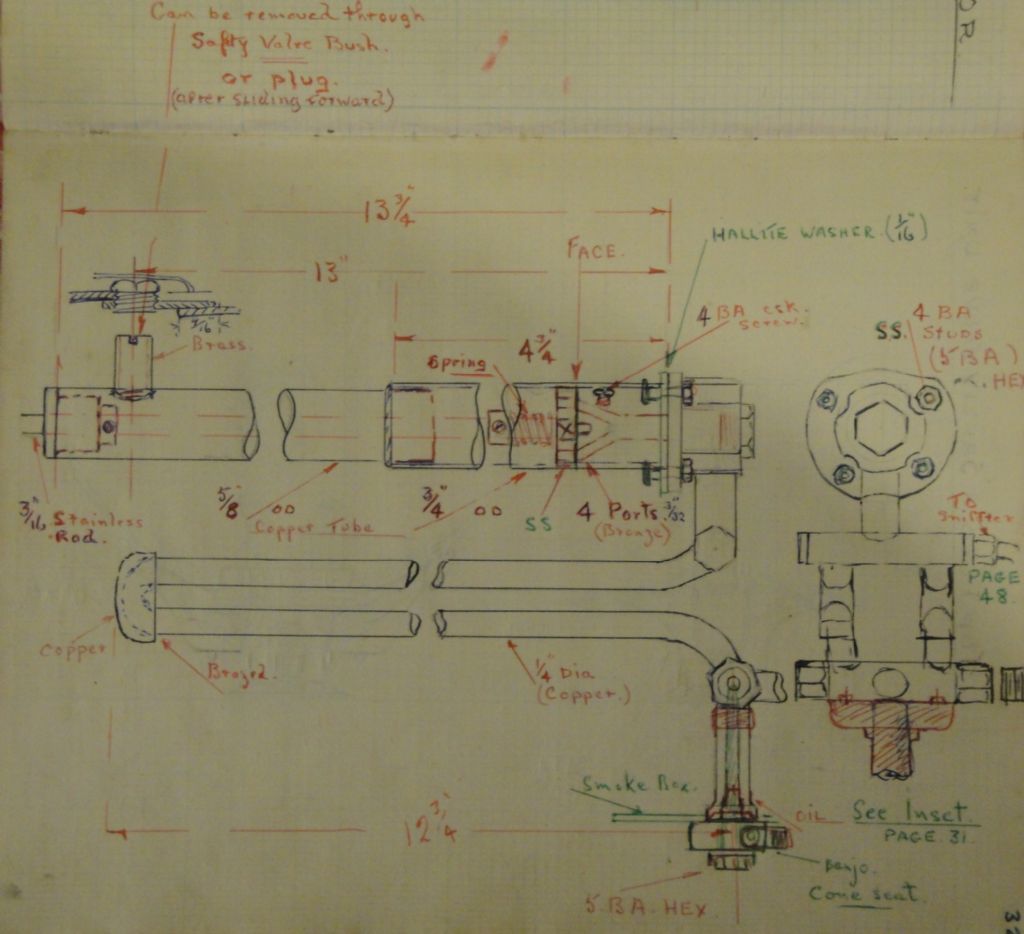 Can be removed through
Safty Valve Bush.
or plug.
(after sliding forward)
OR
13 3/4"
HALLITE WASHER. (1/16")
FACE.
13"
4 BA csk.
screw.
4 BA
S.S. Studs
(5 BA)
HEX
Brass.
4 3/4"
Spring
3/16" Stainless
Rod.
5/8" OD
Copper Tube
3/4" OD
SS
4 Ports.
(Bronze)
3/32"
TO
Snifter
PAGE
48.
Copper
Brazed.
1/4" Dia
(Copper.)
Smoke Box.
OIL
See Inset.
PAGE. 31.
12 3/4"
Banjo.
Cone seat.
5. B A. HEX.
32